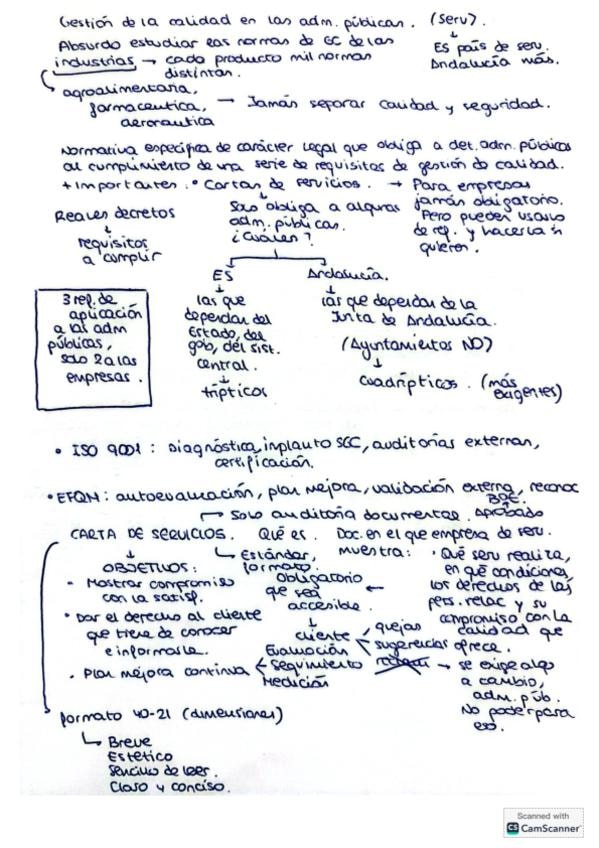 Gestión de la calidad en las adm. públicas. (Serv).
Absurdo estudiar las normas de GC de las
industrias → cada producto mil normas
distintas.
Es país de serv.
Andalucía más.
agroalimentaria,
farmaceutica, → Jamás separar calidad y seguridad.
aeronautica
Normativa específica de carácter legal que obliga a det. adm. públicas
al cumplimiento de una serie de requisitos de gestión de calidad.
+ Importantes. • Cartas de servicios. → Para empresas
jamás obligatorio.
Pero pueden usarlo
de ref. y hacerla si
quieren.
Reales decretos
↓
requisitos
a cumplir
Solo obliga a algunas
adm. públicas.
¿Cuáles?
ES
↓
las que
dependan del
Estado, del
gob, del sist.
central.
↓
trípticos
Andalucía.
↓
las que dependan de la
Junta de Andalucía.
(Ayuntamientos NO)
↓
Cuadrípticos. (más
exigentes)
3 ref. de
aplicación
a las adm
públicas,
solo 2 a las
empresas.
• ISO 9001: Diagnóstico, implanto SGC, auditorías externas,
certificación.
• EFQM: autoevaluación, plan mejora, validación externa, reconoc
→ Solo auditoría documental. Aprobado
CARTA DE SERVICIOS. Qué es. Doc. en el que empresa de serv.
muestra: • Qué serv realiza,
en qué condiciones,
los derechos de las
pers. relac y su
compromiso con la
calidad que
ofrece.
↓
OBJETIVOS:
• Mostrar compromiso
con la satisf.
• Dar el derecho al cliente
que tiene de conocer
e informarle.
• Plan mejora continua
Evaluación
Seguimiento
Medición
→ Estándar,
formato.
Obligatorio
que sea
accesible.
↓
cliente
quejas
sugerencias
→ se exige algo
a cambio,
adm. púb.
No poder para
eso.
formato 40-21 (dimensiones)
→ Breve
Estético
Sencillo de leer.
Claro y conciso.
Scanned with
CS CamScanner